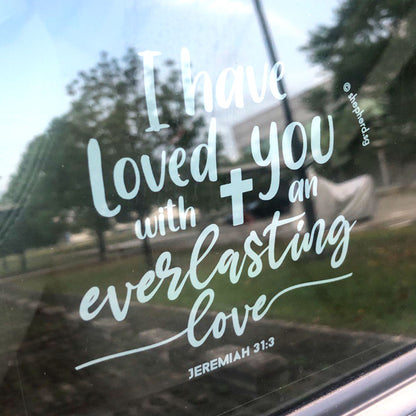 I have
loved you
with an
everlasting
love
JEREMIAH 31:3
© shepherd.sg